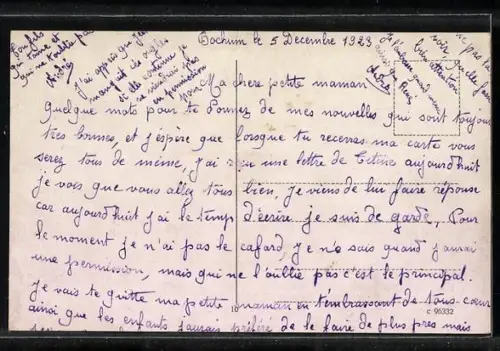 Bochum le 5 Decembre 1923
Ma chere petite maman
Quelque mots pour te donnez de mes nouvelles qui sont toujours
tres bonnes, et j'éspère que lorsque tu receras ma carte vous
serez tous de même, j'ai une lettre de aujourd'huit
je vois que vous allez tous bien, je viens de lui faire réponse
car aujourd'huit j'ai le temp d'écrire je suis de garde, Pour
le moment je n'ai pas le cafard, je ne sais quand j'aurai
une permission, mais qui ne l'oublie pas c'est le principal.
Je vais te quitte ma petite maman en t'embrassant de tous coeur
ainsi que les enfants j'aurais préféré de le faire de plus pres mais
ton fils
qui t'aime et
qui ne t'oublie pas
André
J'ai appris que
mangait ses ongles
si elle continue je
ne viendrai plus
en permission
pour
c 96332